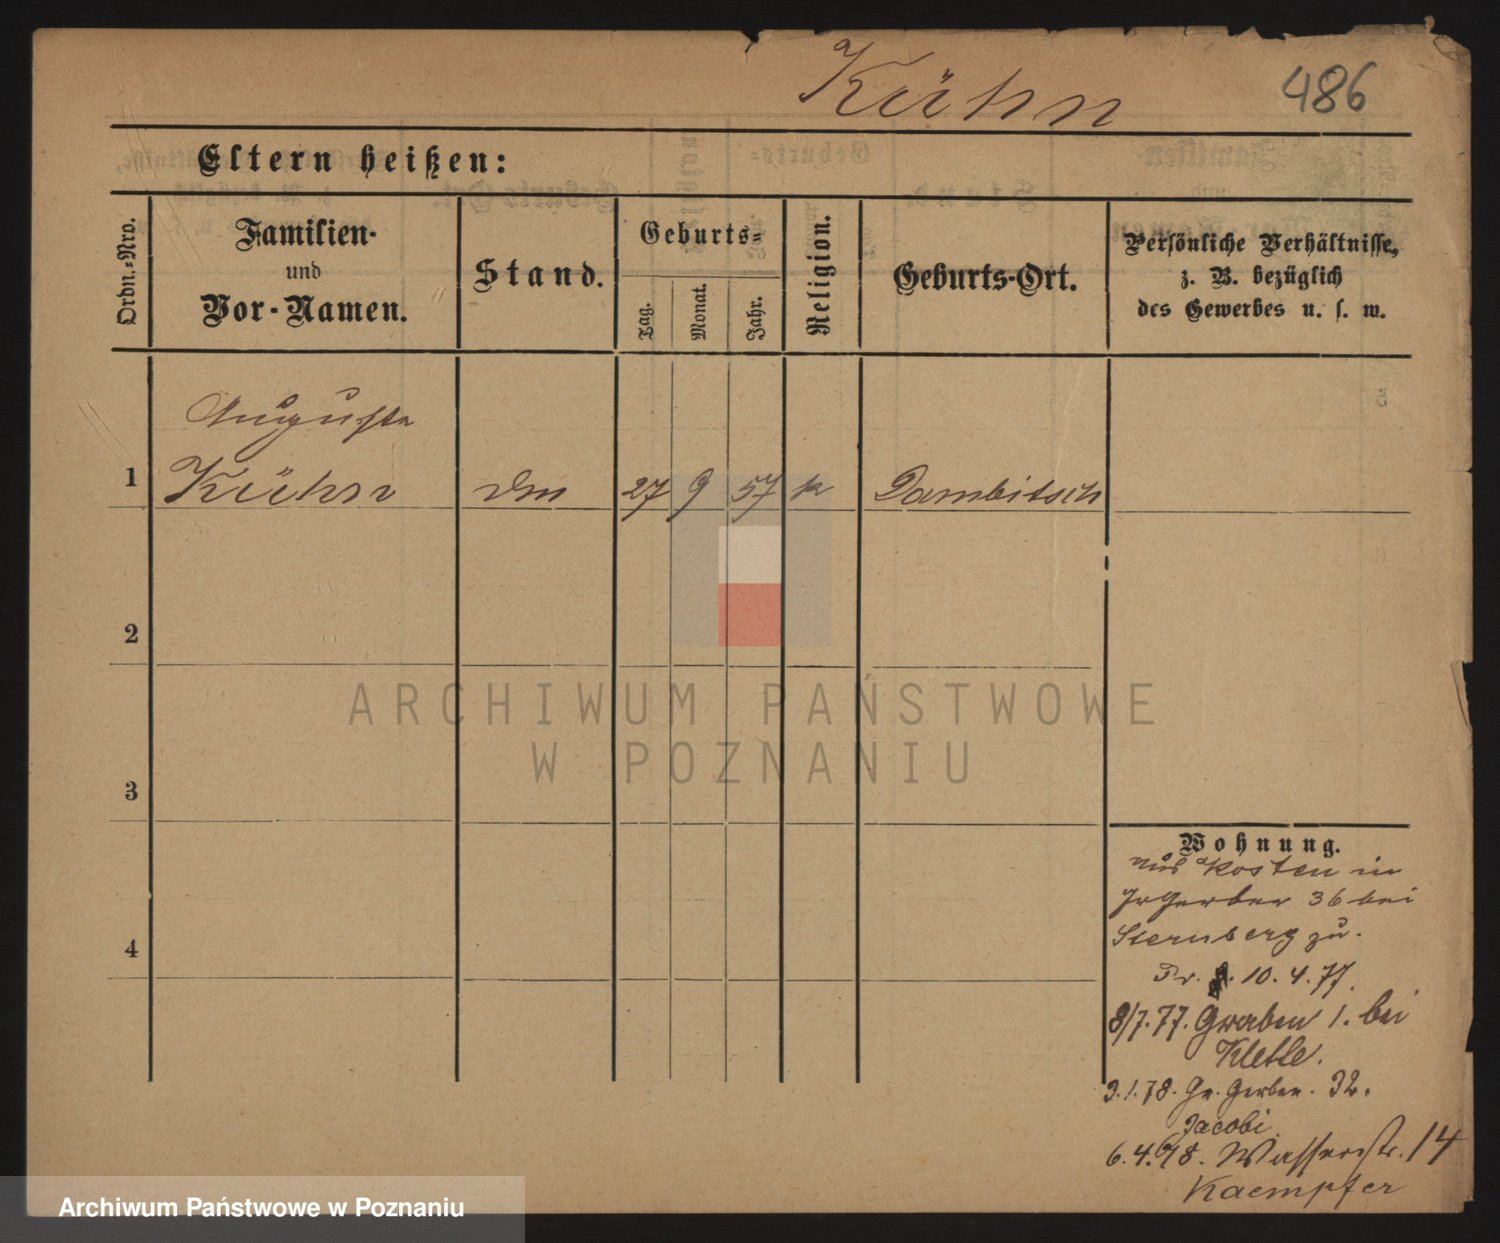 Kühn 486
Eltern heißen:
Ordn.-Nro.
Familien-
und
Vor-Namen.
Stand.
Geburts-
Tag.
Monat.
Jahr.
Religion.
Geburts-Ort.
Persönliche Verhältnisse,
z. B. bezüglich
des Gewerbes u. s. w.
Auguste
1 Kühn Dm 27 9 57 k Dambitsch
2
3
4
Wohnung.
aus Kosten in
Gr Gerber 36 bei
Sternberg zu.
10. 4. 77.
8/7. 77. Graben 1. bei
Kletke.
3. 1. 78. Gr. Gerber. 32.
Jacobi.
6. 4. 78. Wasserstr. 14
Kaempfer
ARCHIWUM PAŃSTWOWE
W POZNANIU
Archiwum Państwowe w Poznaniu